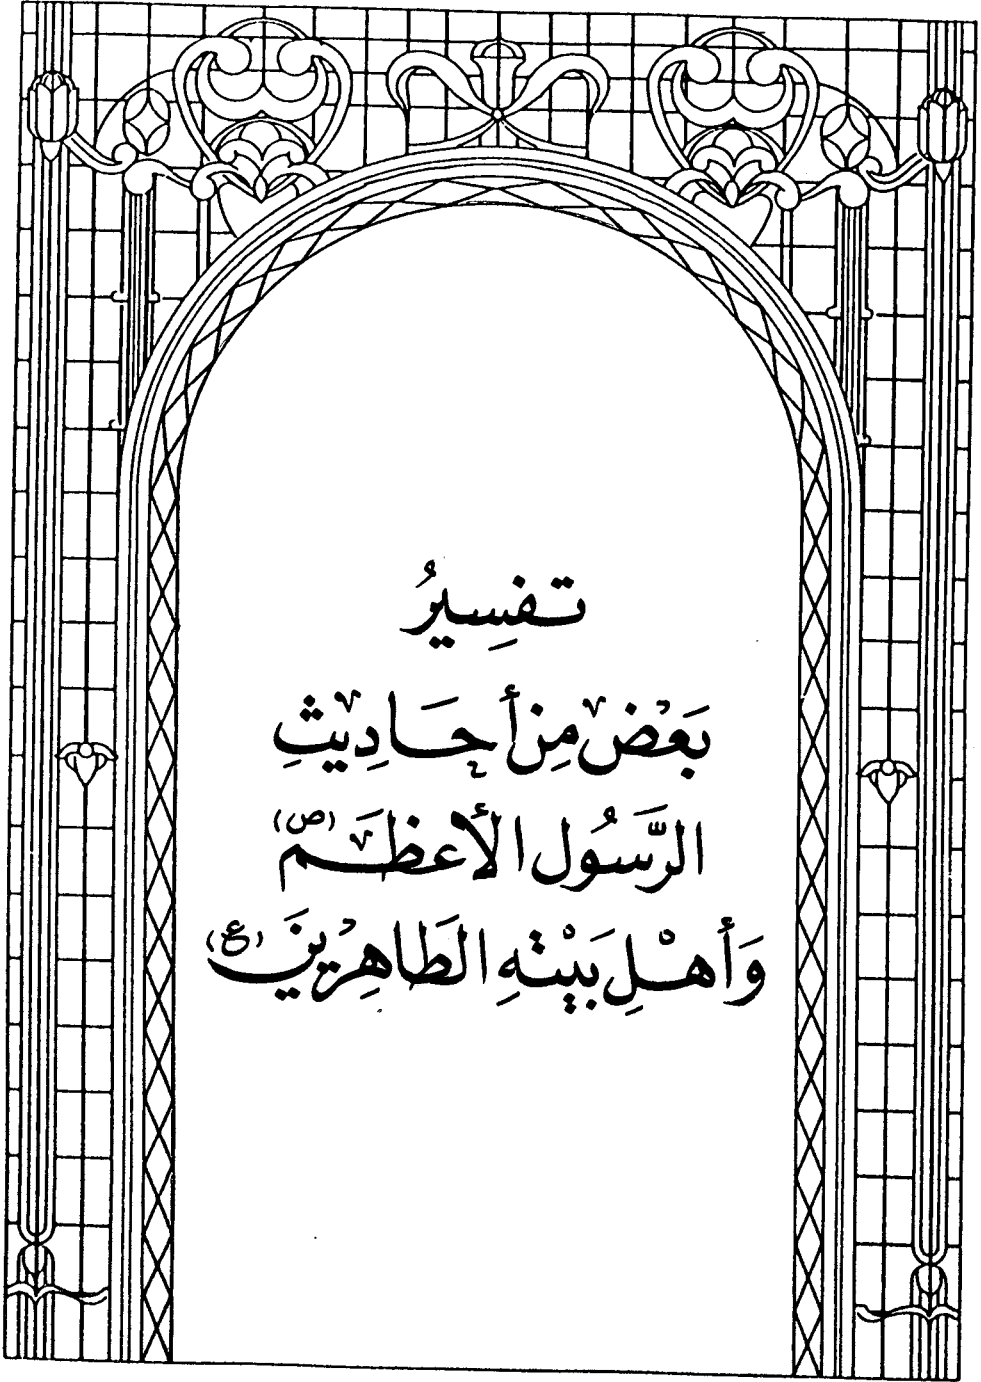 تَفسِيرُ
بَعْض مِن أحَادِيثِ
الرَّسُول الأعظَم (ص)
وَأهْلِ بَيْتهِ الطَاهِرْينَ (ع)